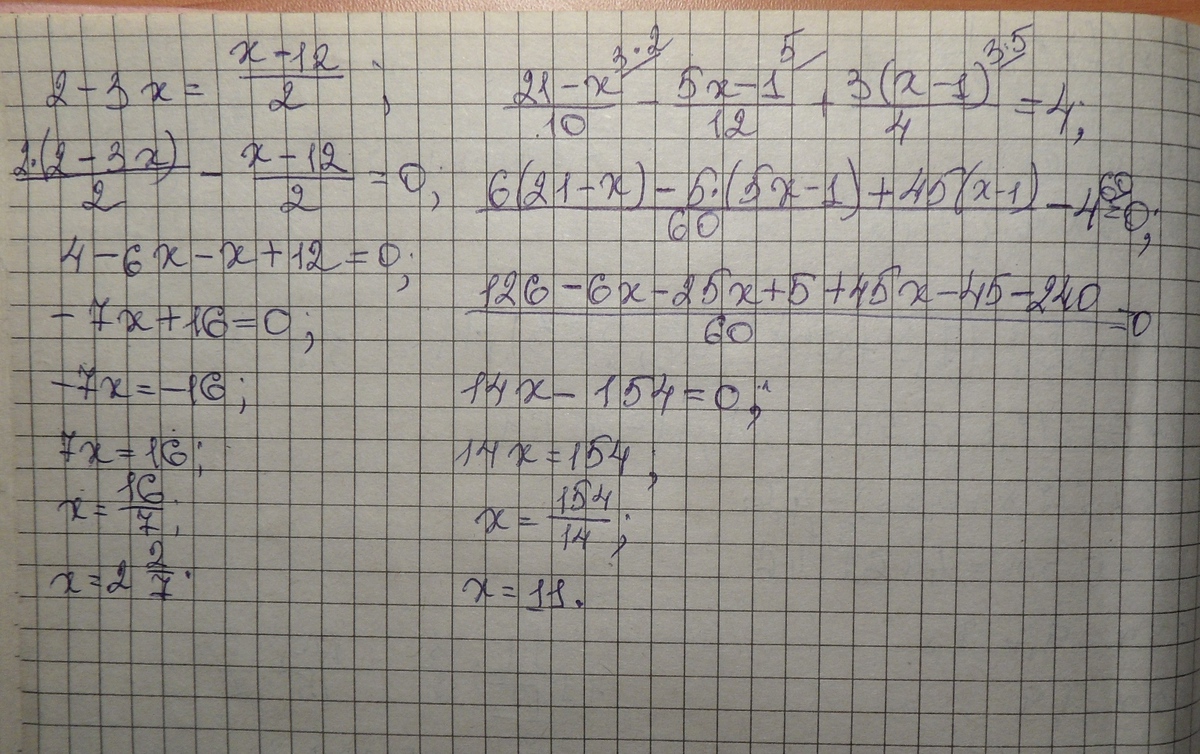 2 - 3x = (x - 12)/2 ;
(2·(2 - 3x))/2 - (x - 12)/2 = 0;
4 - 6x - x + 12 = 0;
- 7x + 16 = 0;
-7x = -16;
7x = 16;
x = 16/7;
x = 2 2/7.
(21 - x)/10 3·2/ - (5x - 1)/12 5/ + (3(x - 1))/4 3·5/ = 4;
(6(21 - x) - 5·(5x - 1) + 45(x - 1))/60 - 4 60/ = 0;
(126 - 6x - 25x + 5 + 45x - 45 - 240)/60 = 0
14x - 154 = 0;
14x = 154;
x = 154/14;
x = 11.